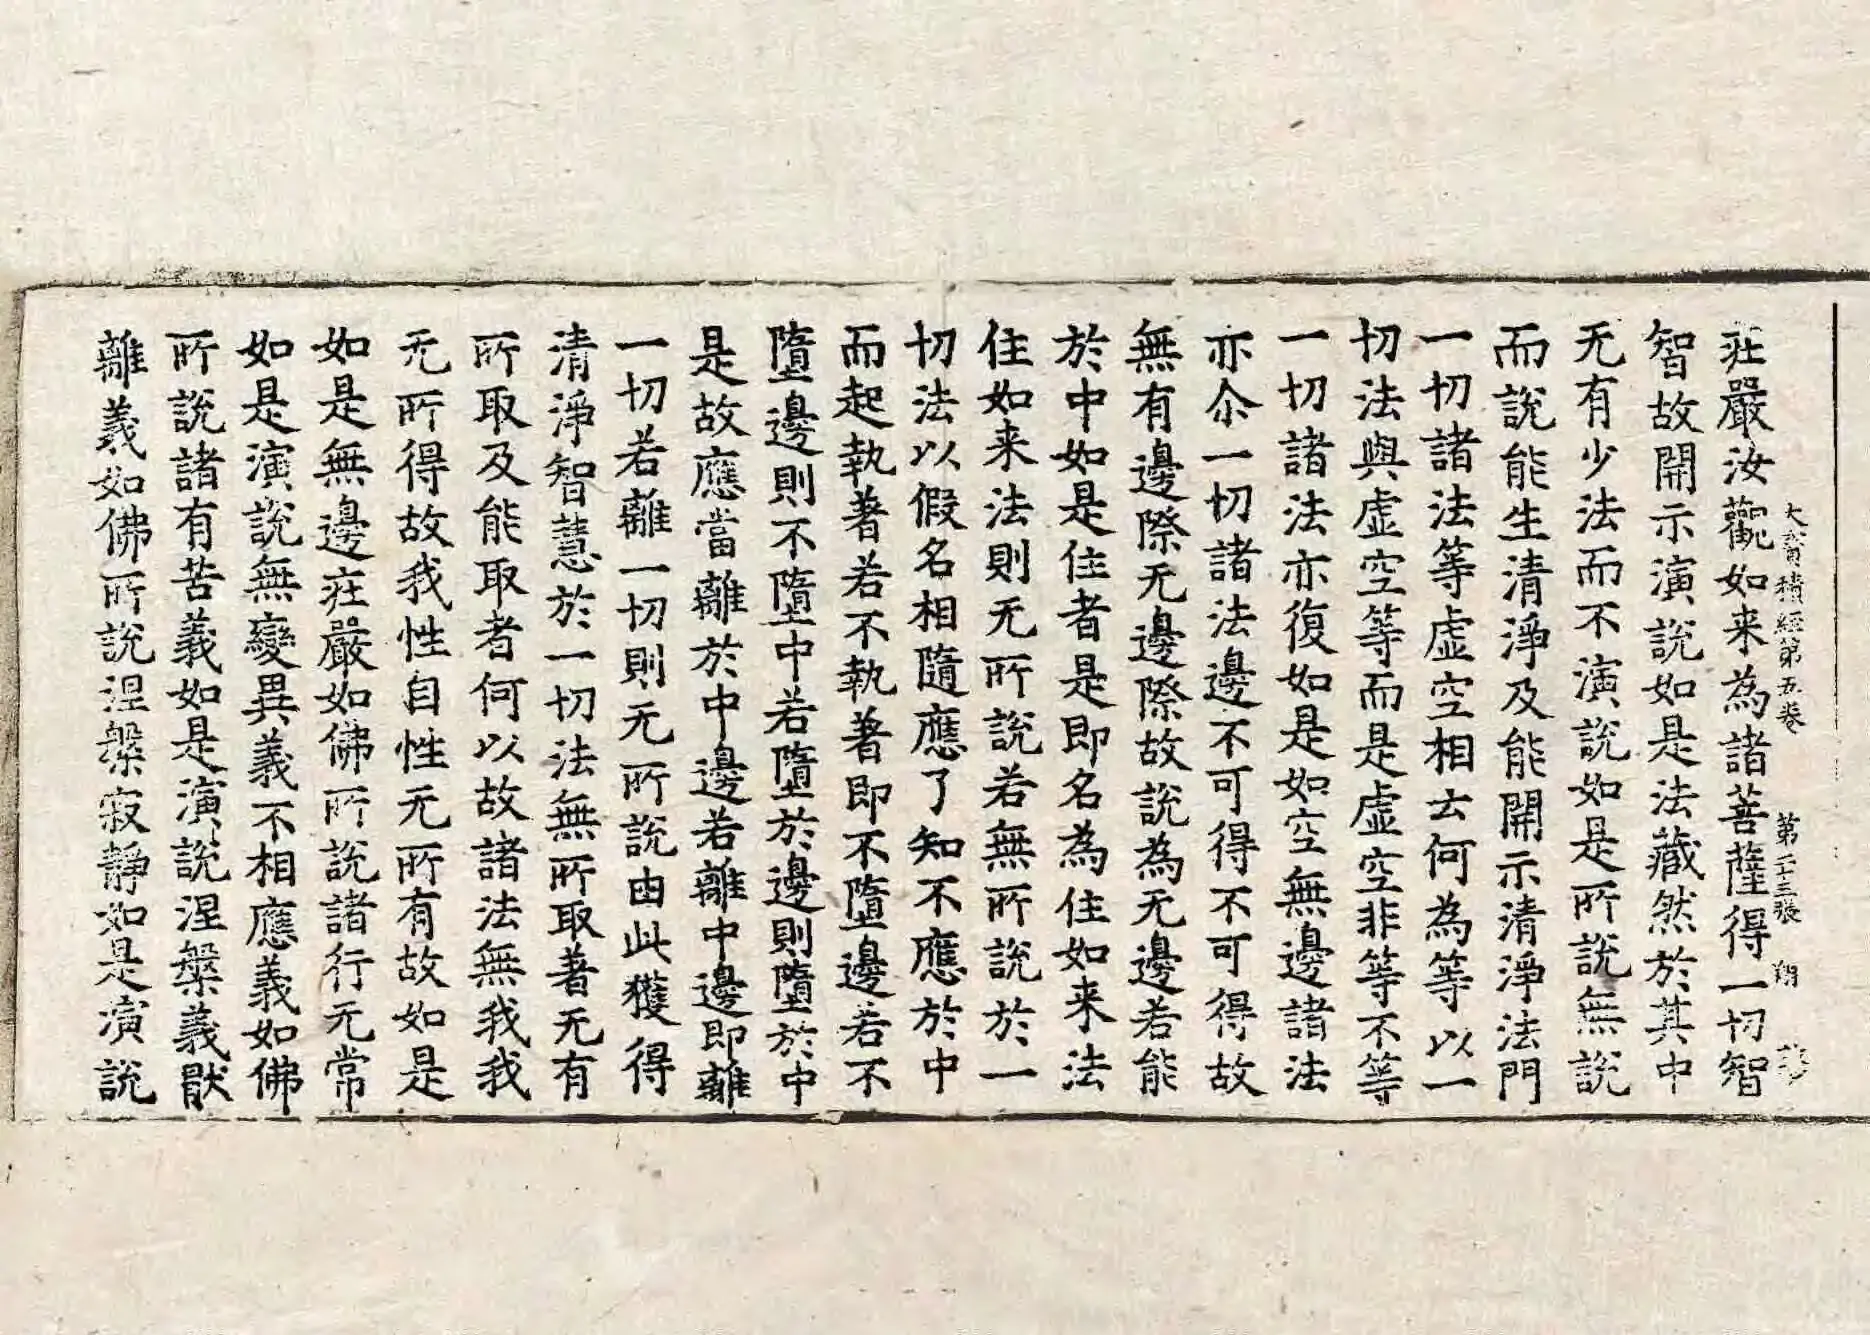 大寳積經第五卷　第二十三張　翔
莊嚴汝觀如来為諸菩薩得一切智智
智故開示演說如是法藏然於其中
无有少法而不演說如是所說無說
而說能生清淨及能開示清淨法門
一切諸法等虛空相去何為等以一
切法與虛空等而是虛空非等不等
一切諸法亦復如是如空無邊諸法
亦尒一切諸法邊不可得不可得故
無有邊際无邊際故說為无邊若能
於中如是住者是即名為住如来法
住如来法則无所說若無所說於一
切法以假名相隨應了知不應於中
而起執著若不執著即不墮邊若不
墮邊則不墮中若墮於邊則墮於中
是故應當離於中邊若離中邊即離
一切若離一切則无所說由此獲得
清淨智慧於一切法無所取著无有
所取及能取者何以故諸法無我我
无所得故我性自性无所有故如是
如是無邊莊嚴如佛所說諸行无常
如是演說無變異義不相應義如佛
所說諸有苦義如是演說涅槃義猒
離義如佛所說涅槃寂靜如是演說